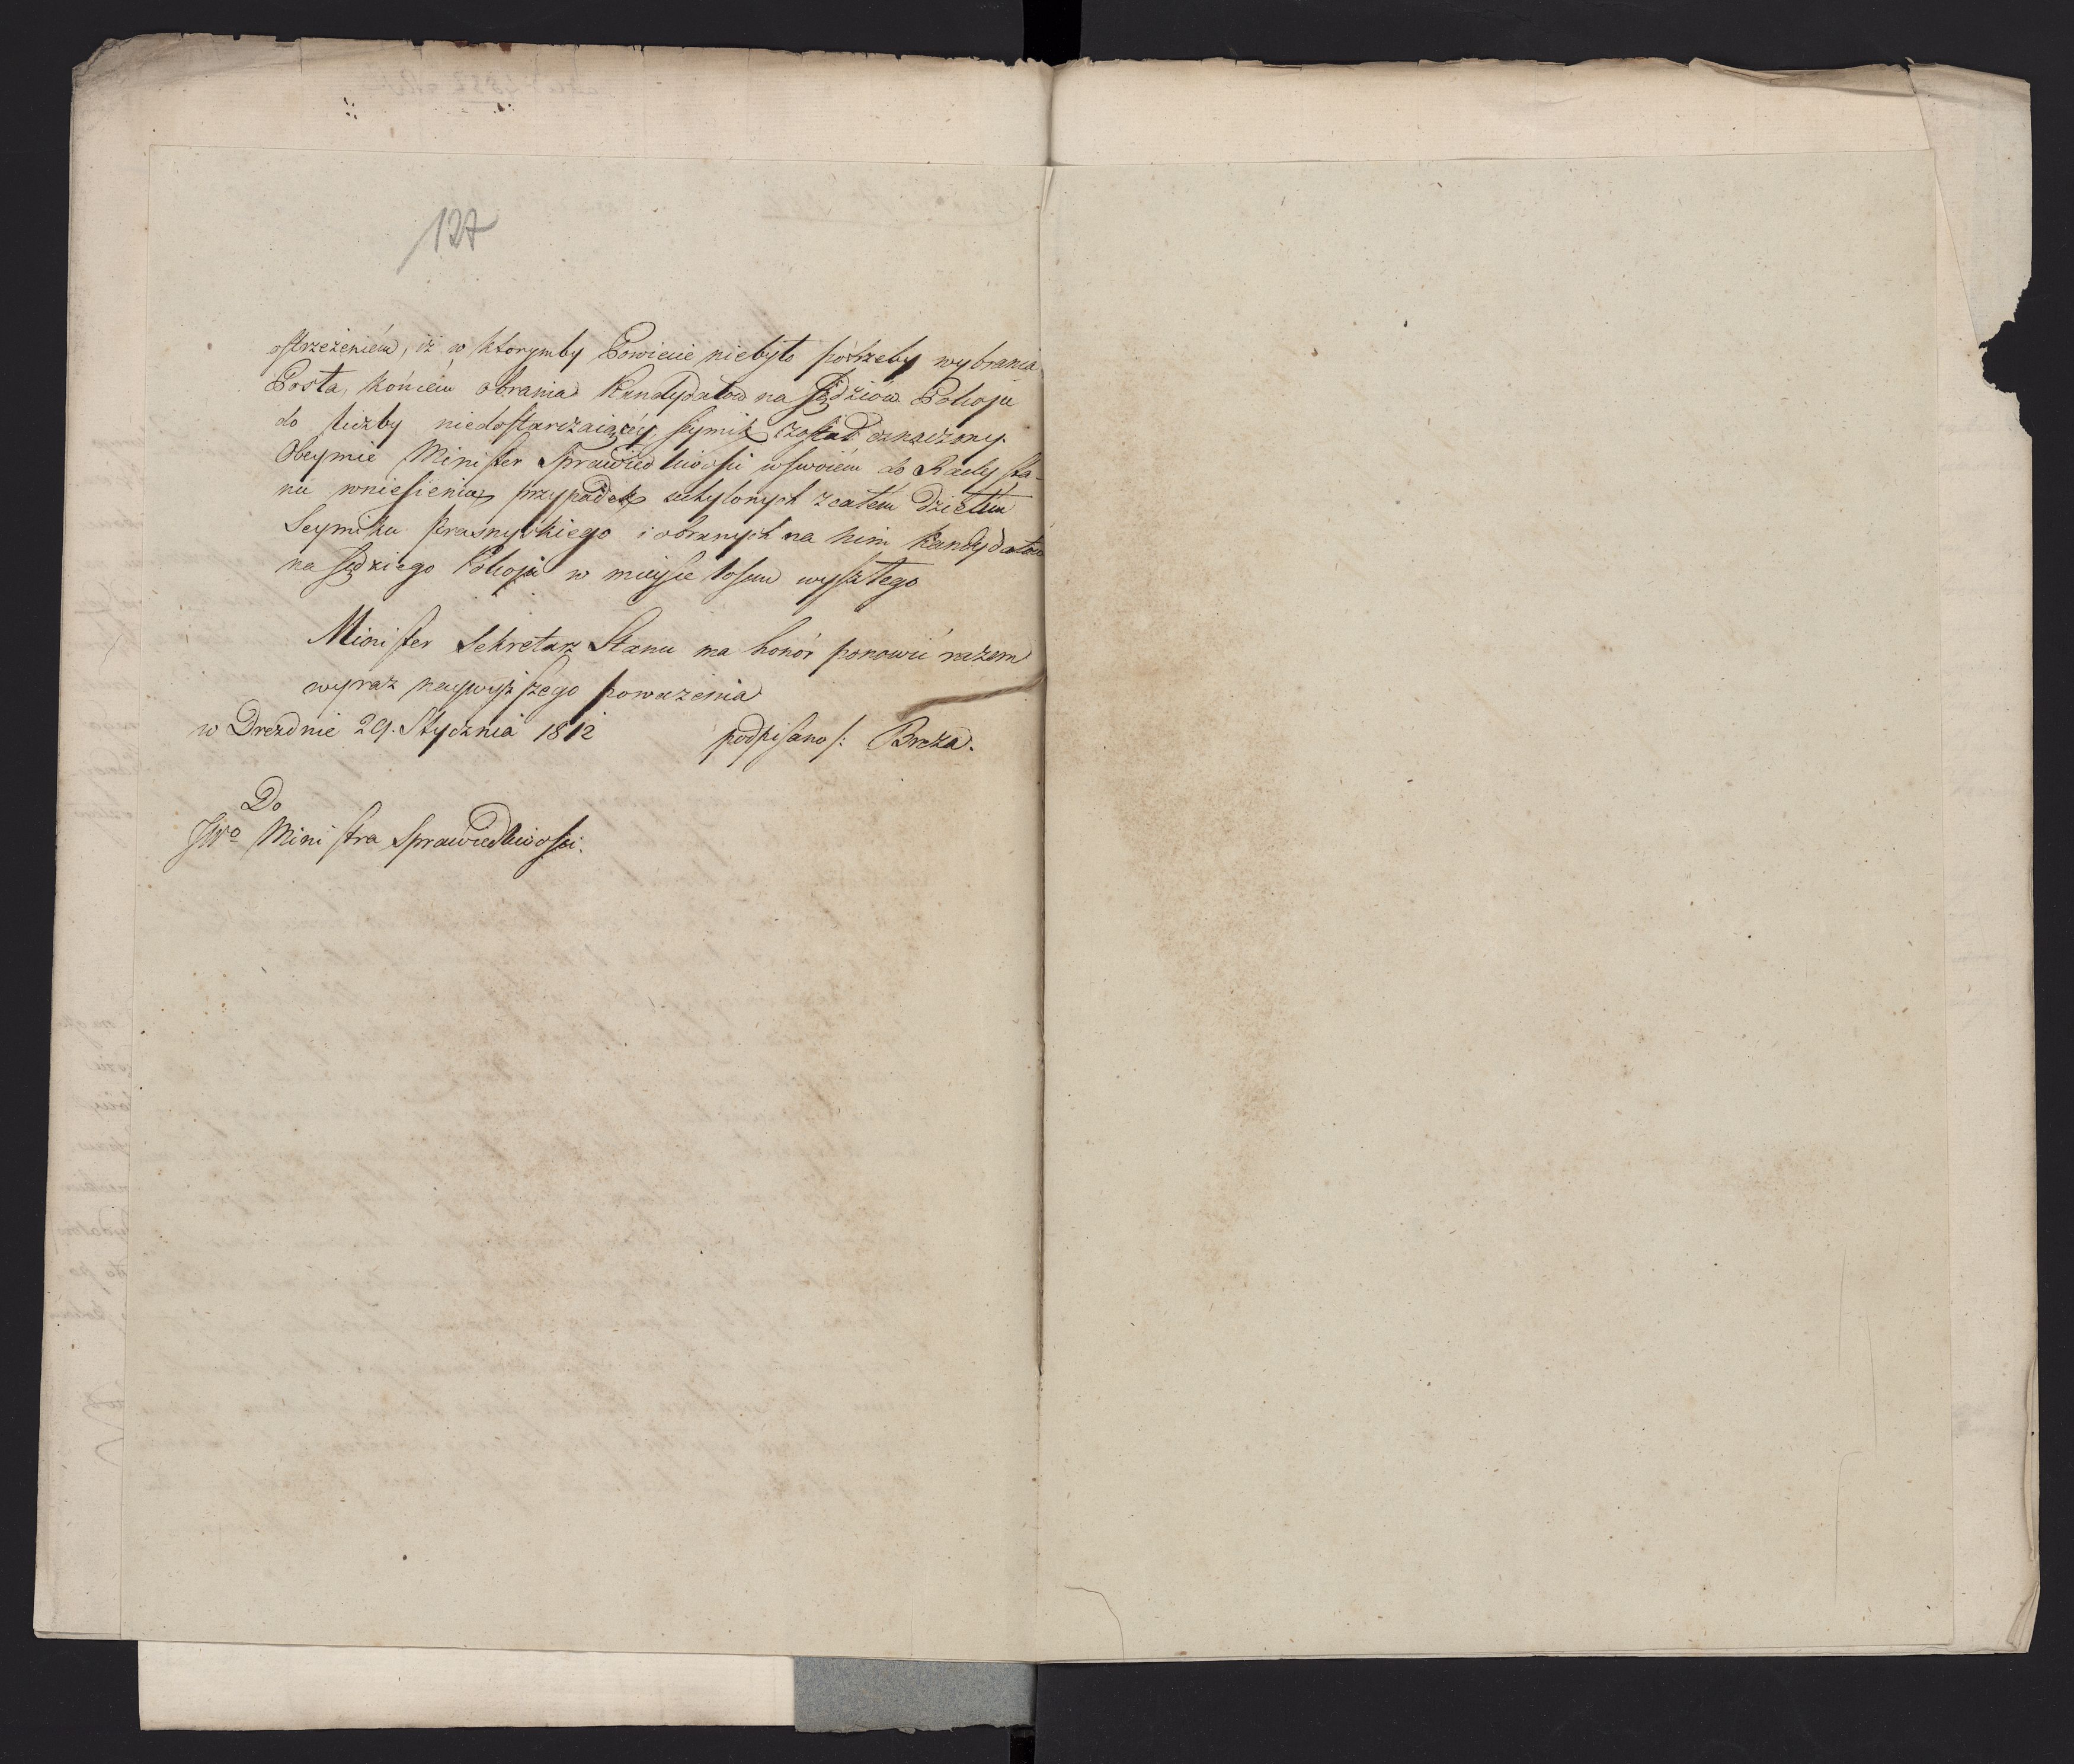 127
ostrzeżeniem, iż w ktorymby Powiecie niebyło potrzeby wybrania
Posła, końcem obrania Kandydatow na Sędziow Pokoju
do liczby niedostarczaiącey seymik został oznaczony.
Obeymie Minister Sprawiedliwości w swoiem do Rady Sta-
nu wniesieniu przypadek uchylonych z całem dziełem
Seymiku Prasnyskiego i obranych na nim Kandydatow
na Sędziego Pokoju w mieysce losem wyszłego
Minister Sekretarz Stanu ma honor ponowić razem
wyraz naywyższego poważenia
w Dreznie 29. Stycznia 1812 podpisano /: Breza.
Do
JWo Ministra Sprawiedliwości.